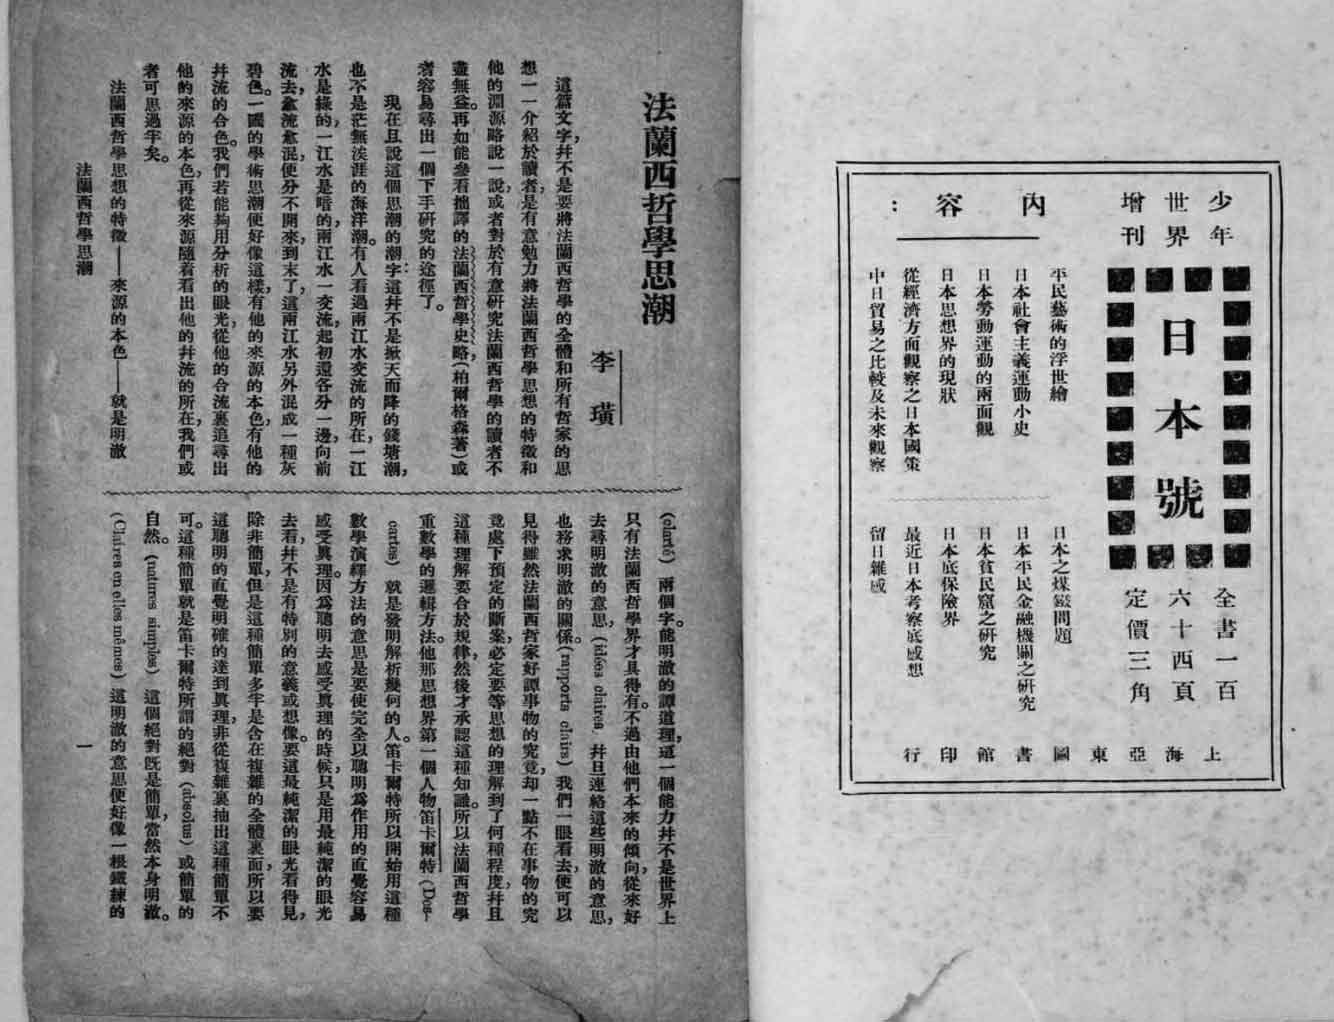 少年
世界
增刊
日本號
全書一百
六十四頁
定價三角
內容:
平民藝術的浮世繪
日本社會主義運動小史
日本勞動運動的兩面觀
日本思想界的現狀
從經濟方面觀察之日本國策
中日貿易之比較及未來觀察
日本之煤鑛問題
日本平民金融機關之研究
日本貧民窟之研究
日本底保險界
最近日本考察底感想
留日雜感
上海亞東圖書館印行
法蘭西哲學思潮
李璜
這篇文字,幷不是要將法蘭西哲學的全體和所有哲家的思
想一一介紹於讀者,是有意勉力將法蘭西哲學思想的特徵和
他的淵源略說一說,或者對於有意研究法蘭西哲學的讀者不
盡無益。再如能參看拙譯的法蘭西哲學史略,(柏爾格森著)或
者容易尋出一個下手研究的途徑了。
現在且說這個思潮的潮字:這幷不是掀天而降的錢塘潮,
也不是茫無涘涯的海洋潮。有人看過兩江水交流的所在,一江
水是綠的,一江水是暗的,兩江水一交流,起初還各分一邊,向前
流去,愈流愈混,便分不開來,到末了,這兩江水另外混成一種灰
碧色。一國的學術思潮便好像這樣,有他的來源的本色,有他的
幷流的合色。我們若能夠用分析的眼光,從他的合流裏追尋出
他的來源的本色,再從來源隨着看出他的幷流的所在,我們或
者可思過半矣。
法蘭西哲學思想的特徵——來源的本色——就是明澈
(clarté)兩個字。能明澈的譚道理,這一個能力幷不是世界上
只有法蘭西哲學界才具得有。不過由他們本來的傾向,從來好
去尋明澈的意思,(idées claires,幷且連絡這些明澈的意思,
也務求明澈的關係。(rapports clairs)我們一眼看去,便可以
見得雖然法蘭西哲家好譚事物的究竟,却一點不在事物的究
竟處下預定的斷案,必定要等思想的理解到了何種程度,幷且
這種理解要合於規律,然後才承認這種知識。所以法蘭西哲學
重數學的邏輯方法。他那思想界第一個人物笛卡爾特(Des-
cartes)就是發明解析幾何的人。笛卡爾特所以開始用這種
數學演繹方法的意思是要使完全以聰明爲作用的直覺容易
感受眞理。因爲聰明去感受眞理的時候,只是用最純潔的眼光
去看,幷不是有特別的意義或想像。要這最純潔的眼光看得見,
除非簡單,但是這種簡單多半是含在複雜的全體裏面,所以要
這聰明的直覺明確的達到眞理,非從複雜裏抽出這種簡單不
可。這種簡單就是笛卡爾特所謂的絕對(absolus)或簡單的
自然。(natures simples)這個絕對旣是簡單,當然本身明澈。
(Claires en elles mêmes)這明澈的意思便好像一根鐵鍊的
法蘭西哲學思潮
一